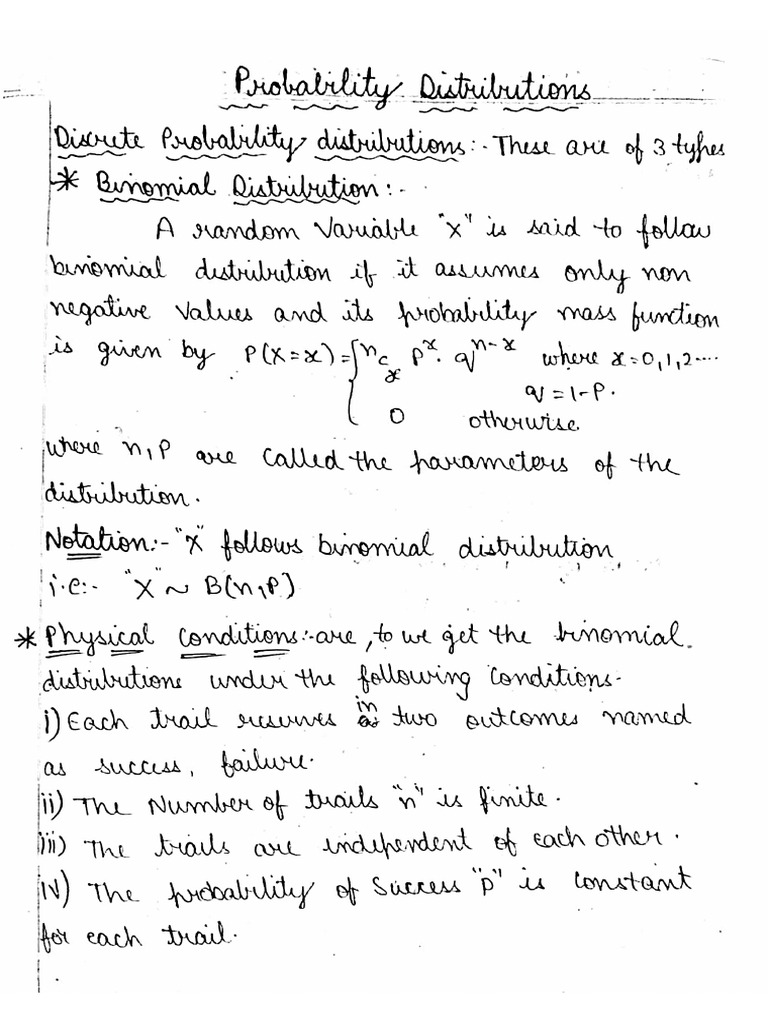 Probability Distributions
Discrete Probability distributions:- These are of 3 types
* Binomial Distribution:-
A random Variable "X" is said to follow
binomial distribution if it assumes only non
negative values and its probability mass function
is given by P(X=x) = { ⁿCₓ pˣ · qⁿ⁻ˣ where x=0,1,2....
q=1-P.
0 otherwise
where n,p are called the parameters of the
distribution.
Notation:- "X" follows binomial distribution
i.e:- "X" ~ B(n,p)
* Physical Conditions:- are, to we get the binomial
distributions under the following conditions-
i) Each trail reserves in two outcomes named
as success, failure.
ii) The Number of trails "n" is finite.
iii) The trails are independent of each other.
iv) The probability of Success "p" is constant
for each trail.